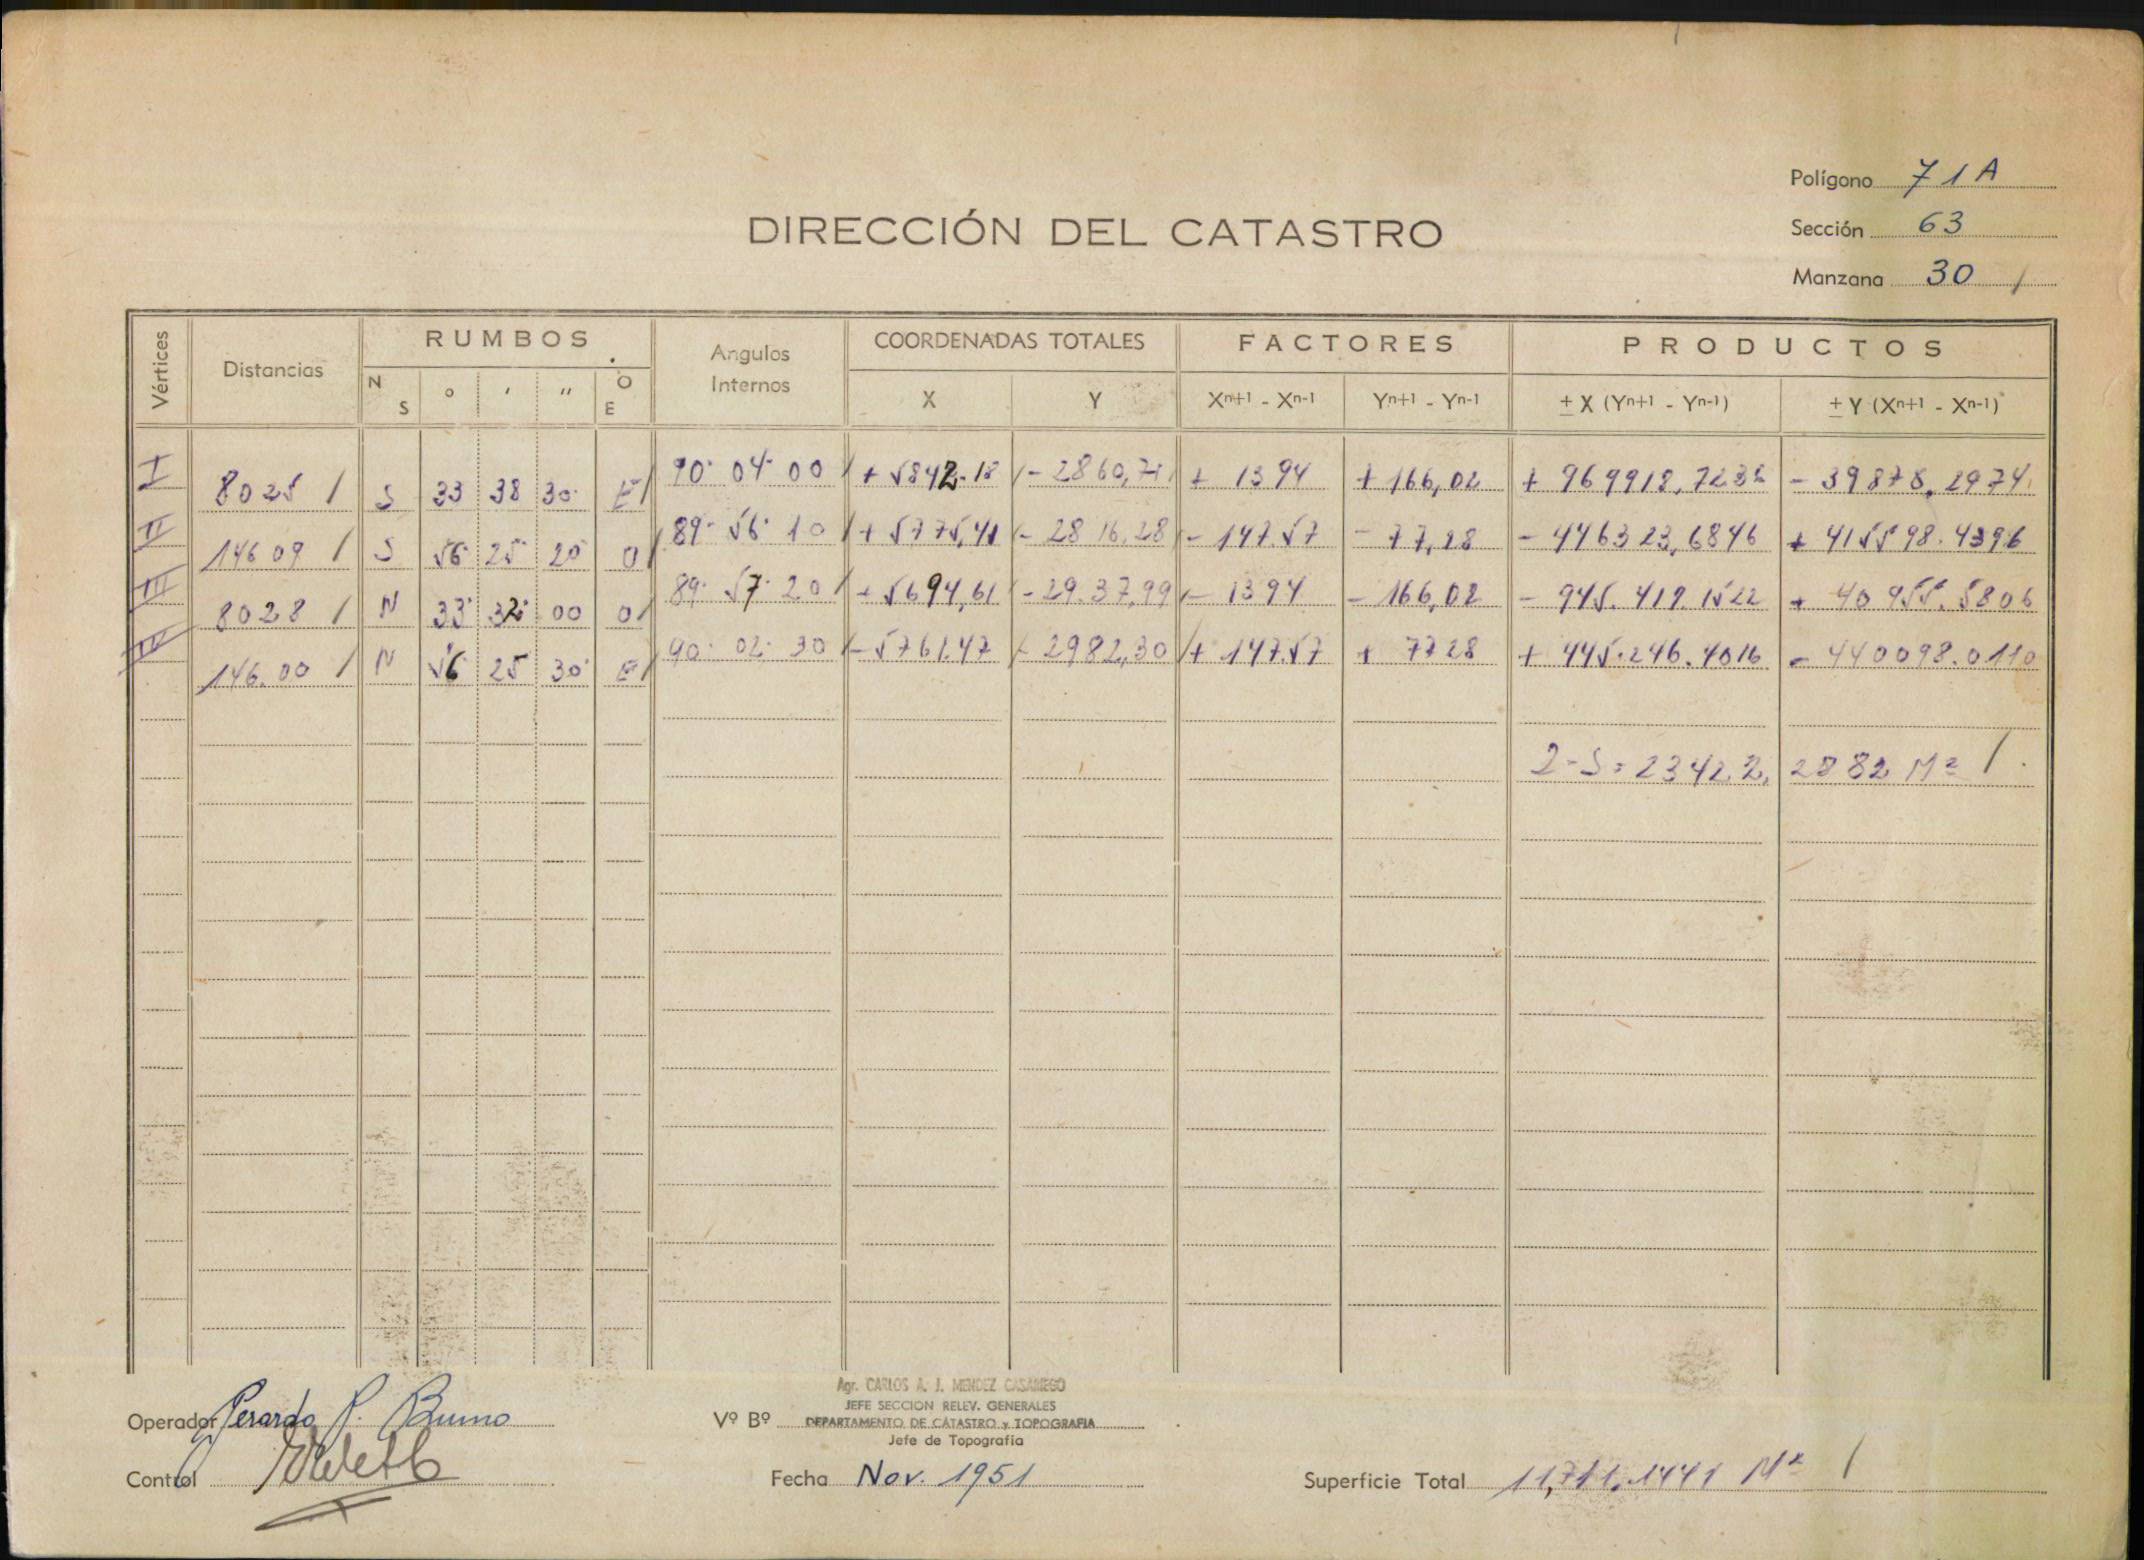 Polígono 71A
DIRECCIÓN DEL CATASTRO
Sección 63
Manzana 30 /
Vértices Distancias RUMBOS Angulos Internos COORDENADAS TOTALES FACTORES PRODUCTOS
N S ° ' '' O E X Y Xn+1 - Xn-1 Yn+1 - Yn-1 ± X (Yn+1 - Yn-1) ± Y (Xn+1 - Xn-1)
I 8025 / S 33 38 30 E / 90° 04' 00 / + 5842.18 / - 2860,71 / + 1394 + 166,02 + 969918,7236 - 39878,2974
II 14609 / S 56 25 20 O / 89° 56' 10 / + 5775,41 / - 2816,28 / - 147.57 - 77,28 - 446323,6846 + 415598.4396
III 8028 / N 33 32 00 O / 89° 57' 20 / + 5694,61 / - 29.37,99 / - 1394 - 166,02 - 945.419.1522 + 40955.5806
IV 146.00 / N 56 25 30 E / 90° 02' 30 / - 5761.47 / 2982,30 / + 147.57 + 7728 + 445.246.4016 - 440098.0110
2-S = 23422, 2882 M² /
Operador Gerardo P. Bruno
Vº Bº
Agr. CARLOS A. J. MENDEZ CASARIEGO
JEFE SECCION RELEV. GENERALES
DEPARTAMENTO DE CATASTRO y TOPOGRAFIA
Jefe de Topografía
Control
Fecha Nov. 1951
Superficie Total 11,711.1441 M² /